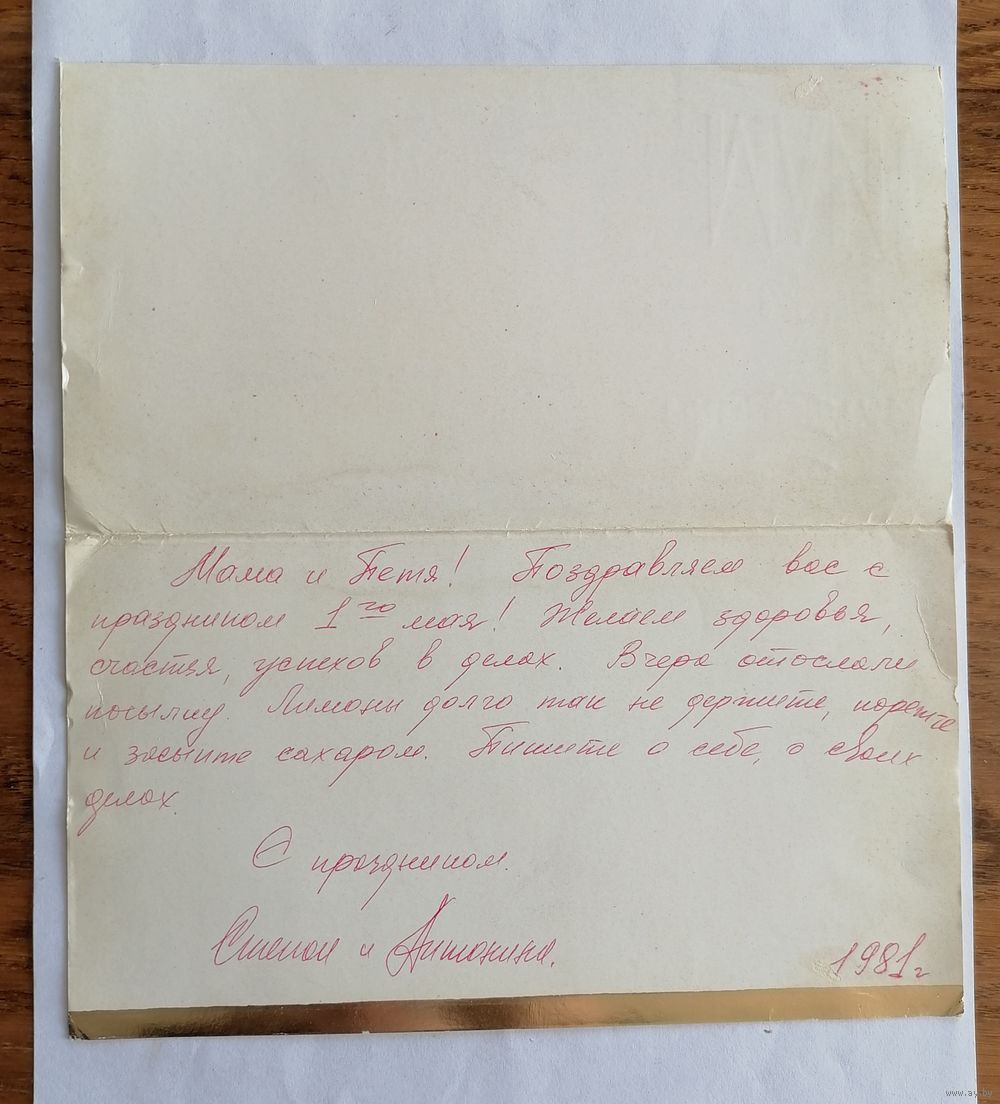 Мама и Петя! Поздравляем вас с
праздником 1го мая! Желаем здоровья,
счастья, успехов в делах. Вчера отослали
посылку. Лимоны долго так не держите, порежте
и засыпте сахаром. Пишите о себе, о своих
делах.
С праздником.
Степан и Антонина.
1981г
www.ay.by